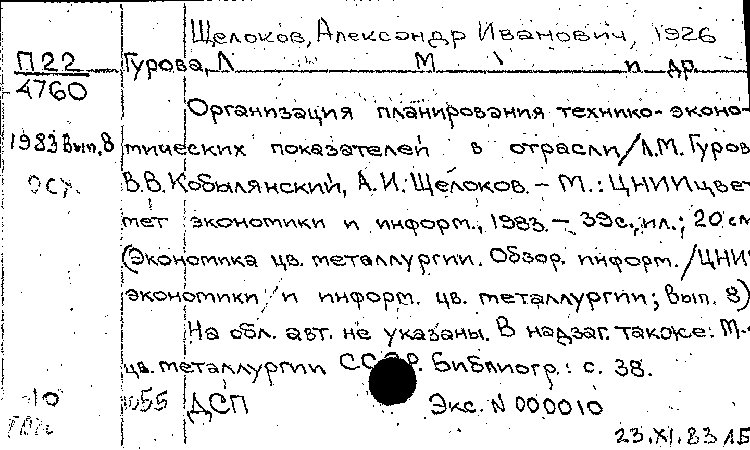 Щелоков, Александр Иванович, 1926
П22 Гурова, Л М и др.
4760
Организация планирования технико-эконо-
1983 Вып. 8 мических показателей в отрасли / Л.М. Гуров
ОСУ. В.В. Кобылянский, А.И. Щелоков. – М.: ЦНИИцвет
мет экономики и информ., 1983. – 39с., ил.; 20 см
(Экономика цв. металлургии. Обзор. информ. / ЦНИИ
экономики и информ. цв. металлургии; Вып. 8)
На обл. авт. не указаны. В надзаг. также: М-
цв. металлургии СССР. Библиогр.: с. 38.
10 055 ДСП Экс. N 000010
23.XI.83 ЛБ